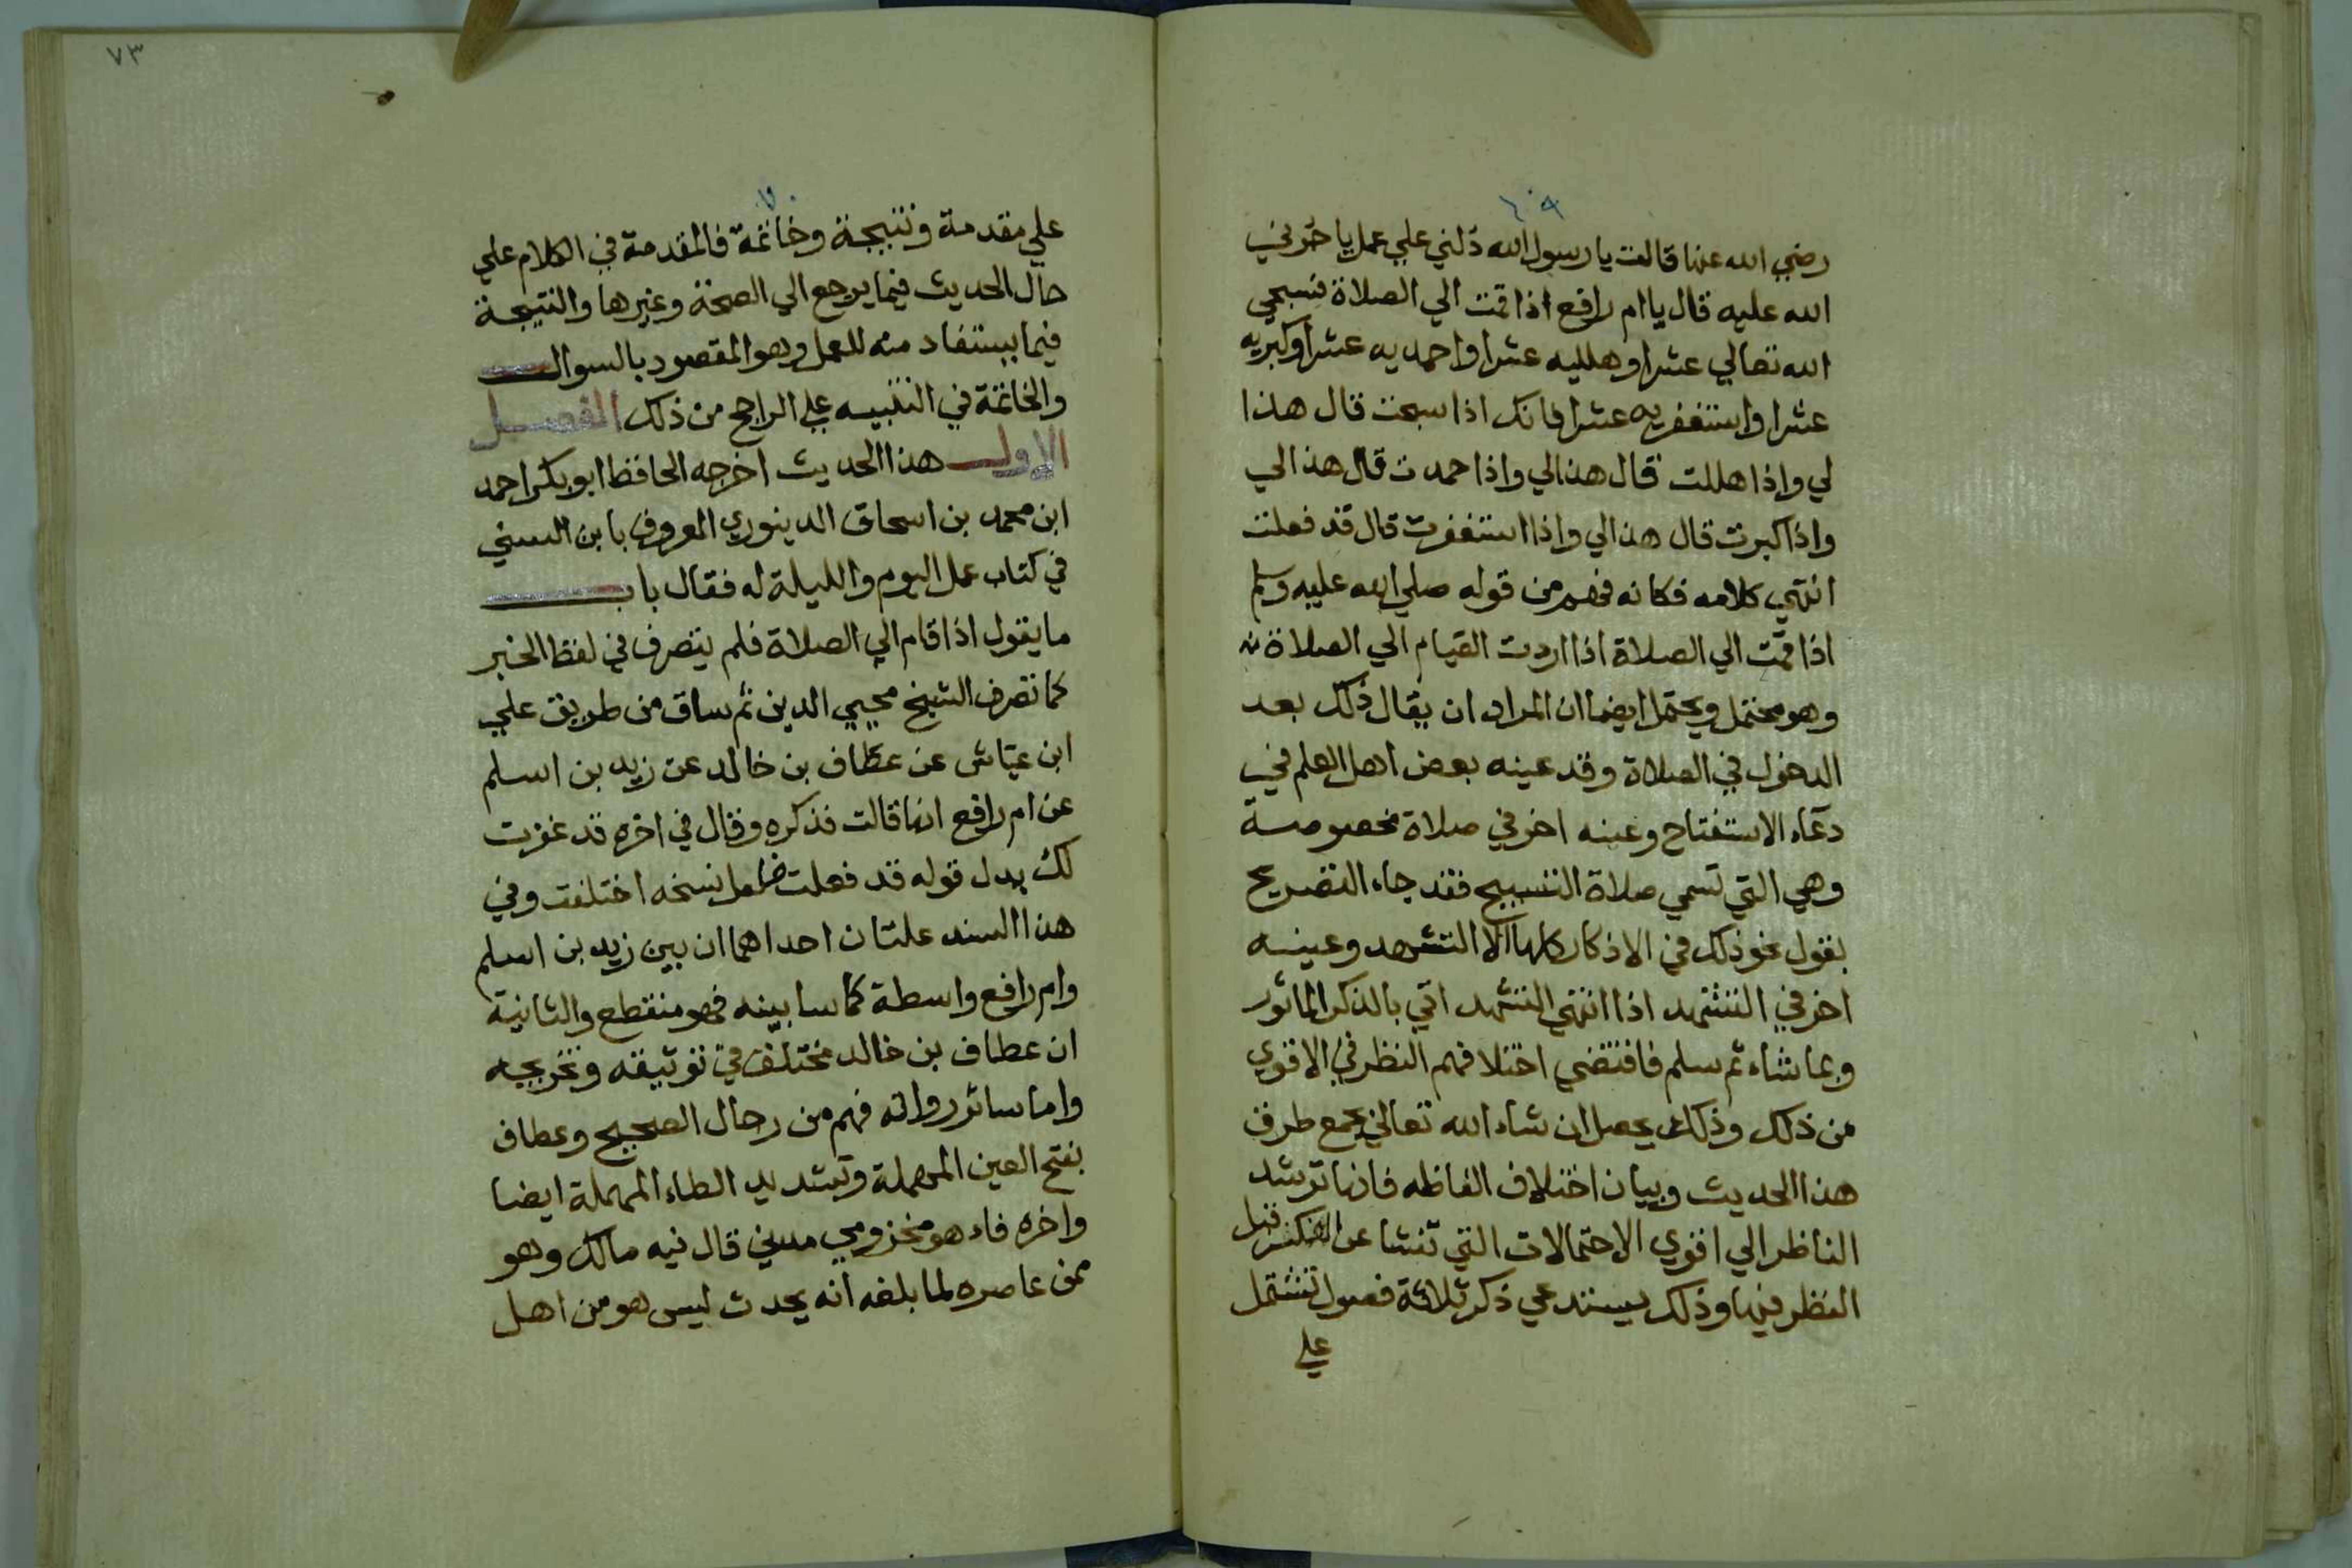 ٦٩
رضي الله عنها قالت يا رسول الله دلني علي عمل ياجرني
الله عليه قال يا ام رافع اذا قمت الي الصلاة فسبحي
الله تعالي عشرا وهلليه عشرا واحمديه عشرا وكبريه
عشرا واستغفريه عشرا فانك اذا سبحت قال هذا
لي واذا هللت قال هذا لي واذا حمدت قال هذا لي
واذا كبرت قال هذا لي واذا استغفرت قال قد فعلت
انتهي كلامه فكانه فهم من قوله صلي الله عليه وسلم
اذا قمت الي الصلاة اذا اردت القيام الي الصلاة
وهو محتمل ويحتمل ايضا ان المراد ان يقال ذلك بعد
الدخول في الصلاة وقد عينه بعض اهل العلم في
دعاء الاستفتاح وعينه اخر في صلاة مخصوصة
وهي التي تسمي صلاة التسبيح فقد جاء التصريح
بقول نحو ذلك في الاذكار كلها الا التشهد وعينه
اخر في التشهد اذا انتهي التشهد اتي بالذكر الماثور
وبما شاء ثم سلم فاقتضي اختلافهم النظر في الاقوي
من ذلك وذلك يحصل ان شاء الله تعالي بجمع طرق
هذا الحديث وبيان اختلاف الفاظه فانها ترشد
الناظر الي اقوي الاحتمالات التي تنشا عن الفكر قبل
النظر فيها وذلك يستدعي ذكر ثلاثة فصول تشتمل
علي
٧٣
٧٠
علي مقدمة ونتيجة وخاتمة فالمقدمة في الكلام علي
حال الحديث فيما يرجع الي الصحة وغيرها والنتيجة
فيما يستفاد منه للعمل وهو المقصود بالسوال
والخاتمة في التنبيه علي الراجح من ذلك الفصل
الاول هذا الحديث اخرجه الحافظ ابو بكر احمد
ابن محمد بن اسحاق الدينوري المعروف بابن السني
في كتاب عمل اليوم والليلة له فقال باب
ما يقول اذا قام الي الصلاة فلم يتصرف في لفظ الخبر
كما تصرف الشيخ محيي الدين ثم ساق من طريق علي
ابن عياش عن عطاف بن خالد عن زيد بن اسلم
عن ام رافع انها قالت فذكره وقال في اخره قد غفرت
لك بدل قوله قد فعلت فلعل نسخه اختلفت وفي
هذا السند علتان احداهما ان بين زيد بن اسلم
وام رافع واسطة كما سابينه فهو منقطع والثانية
ان عطاف بن خالد مختلف في توثيقه وتجريحه
واما سائر رواته فهم من رجال الصحيح وعطاف
بفتح العين المهملة وتشديد الطاء المهملة ايضا
واخره فاء هو مخزومي مدني قال فيه مالك وهو
ممن عاصره لما بلغه انه يحدث ليس هو من اهل